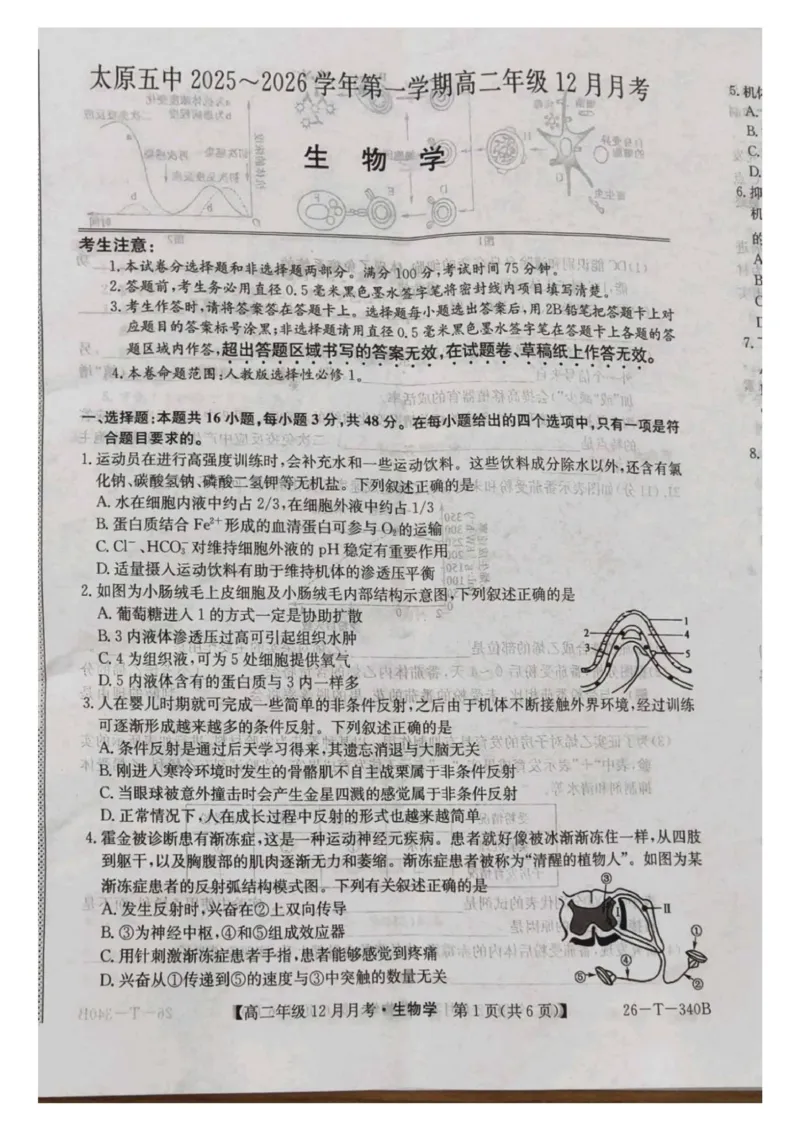 太原五中2025～2026学年第一学期高二年级12月月考
生 物 学
考生注意：
1.本试卷分选择题和非选择题两部分。满分100分,考试时间75分钟。
2.答题前,考生务必用直径0.5毫米黑色墨水签字笔将密封线内项目填写清楚。
3.考生作答时,请将答案答在答题卡上。选择题每小题选出答案后,用2B铅笔把答题卡上对
应题目的答案标号涂黑;非选择题请用直径0.5毫米黑色墨水签字笔在答题卡上各题的答
题区域内作答,超出答题区域书写的答案无效,在试题卷、草稿纸上作答无效。
4.本卷命题范围:人教版选择性必修1。
一、选择题:本题共16小题,每小题3分,共48分。在每小题给出的四个选项中,只有一项是符
合题目要求的。
1.运动员在进行高强度训练时,会补充水和一些运动饮料。这些饮料成分除水以外,还含有氯
化钠、碳酸氢钠、磷酸二氢钾等无机盐。下列叙述正确的是
A.水在细胞内液中约占2/3,在细胞外液中约占1/3
B.蛋白质结合Fe²⁺形成的血清蛋白可参与O₂的运输
C.Cl⁻、HCO₃⁻对维持细胞外液的pH稳定有重要作用
D.适量摄人运动饮料有助于维持机体的渗透压平衡
2.如图为小肠绒毛上皮细胞及小肠绒毛内部结构示意图,下列叙述正确的是
A.葡萄糖进人1的方式一定是协助扩散
B.3内液体渗透压过高可引起组织水肿
C.4为组织液,可为5处细胞提供氧气
D.5内液体含有的蛋白质与3内一样多
1
2
4
3
5
3.人在婴儿时期就可完成一些简单的非条件反射,之后由于机体不断接触外界环境,经过训练
可逐渐形成越来越多的条件反射。下列叙述正确的是
A.条件反射是通过后天学习得来,其遗忘消退与大脑无关
B.刚进人寒冷环境时发生的骨骼肌不自主战栗属于非条件反射
C.当眼球被意外撞击时会产生金星四溅的感觉属于非条件反射
D.正常情况下,人在成长过程中反射的形式也越来越简单
4.霍金被诊断患有渐冻症,这是一种运动神经元疾病。患者就好像被冰渐渐冻住一样,从四肢
到躯干,以及胸腹部的肌肉逐渐无力和萎缩。渐冻症患者被称为“清醒的植物人”。如图为某
渐冻症患者的反射弧结构模式图。下列有关叙述正确的是
A.发生反射时,兴奋在②上双向传导
B.③为神经中枢,④和⑤组成效应器
C.用针刺激渐冻症患者手指,患者能够感觉到疼痛
D.兴奋从①传递到⑤的速度与③中突触的数量无关
③
Ⅰ
Ⅱ
①
④
⑤
②
【高二年级12月月考·生物学 第1页(共6页)】
26－T－340B
5.机体
A.
B.
C.
D.
6.抑
机
的
A
B
C
D
7.
8.